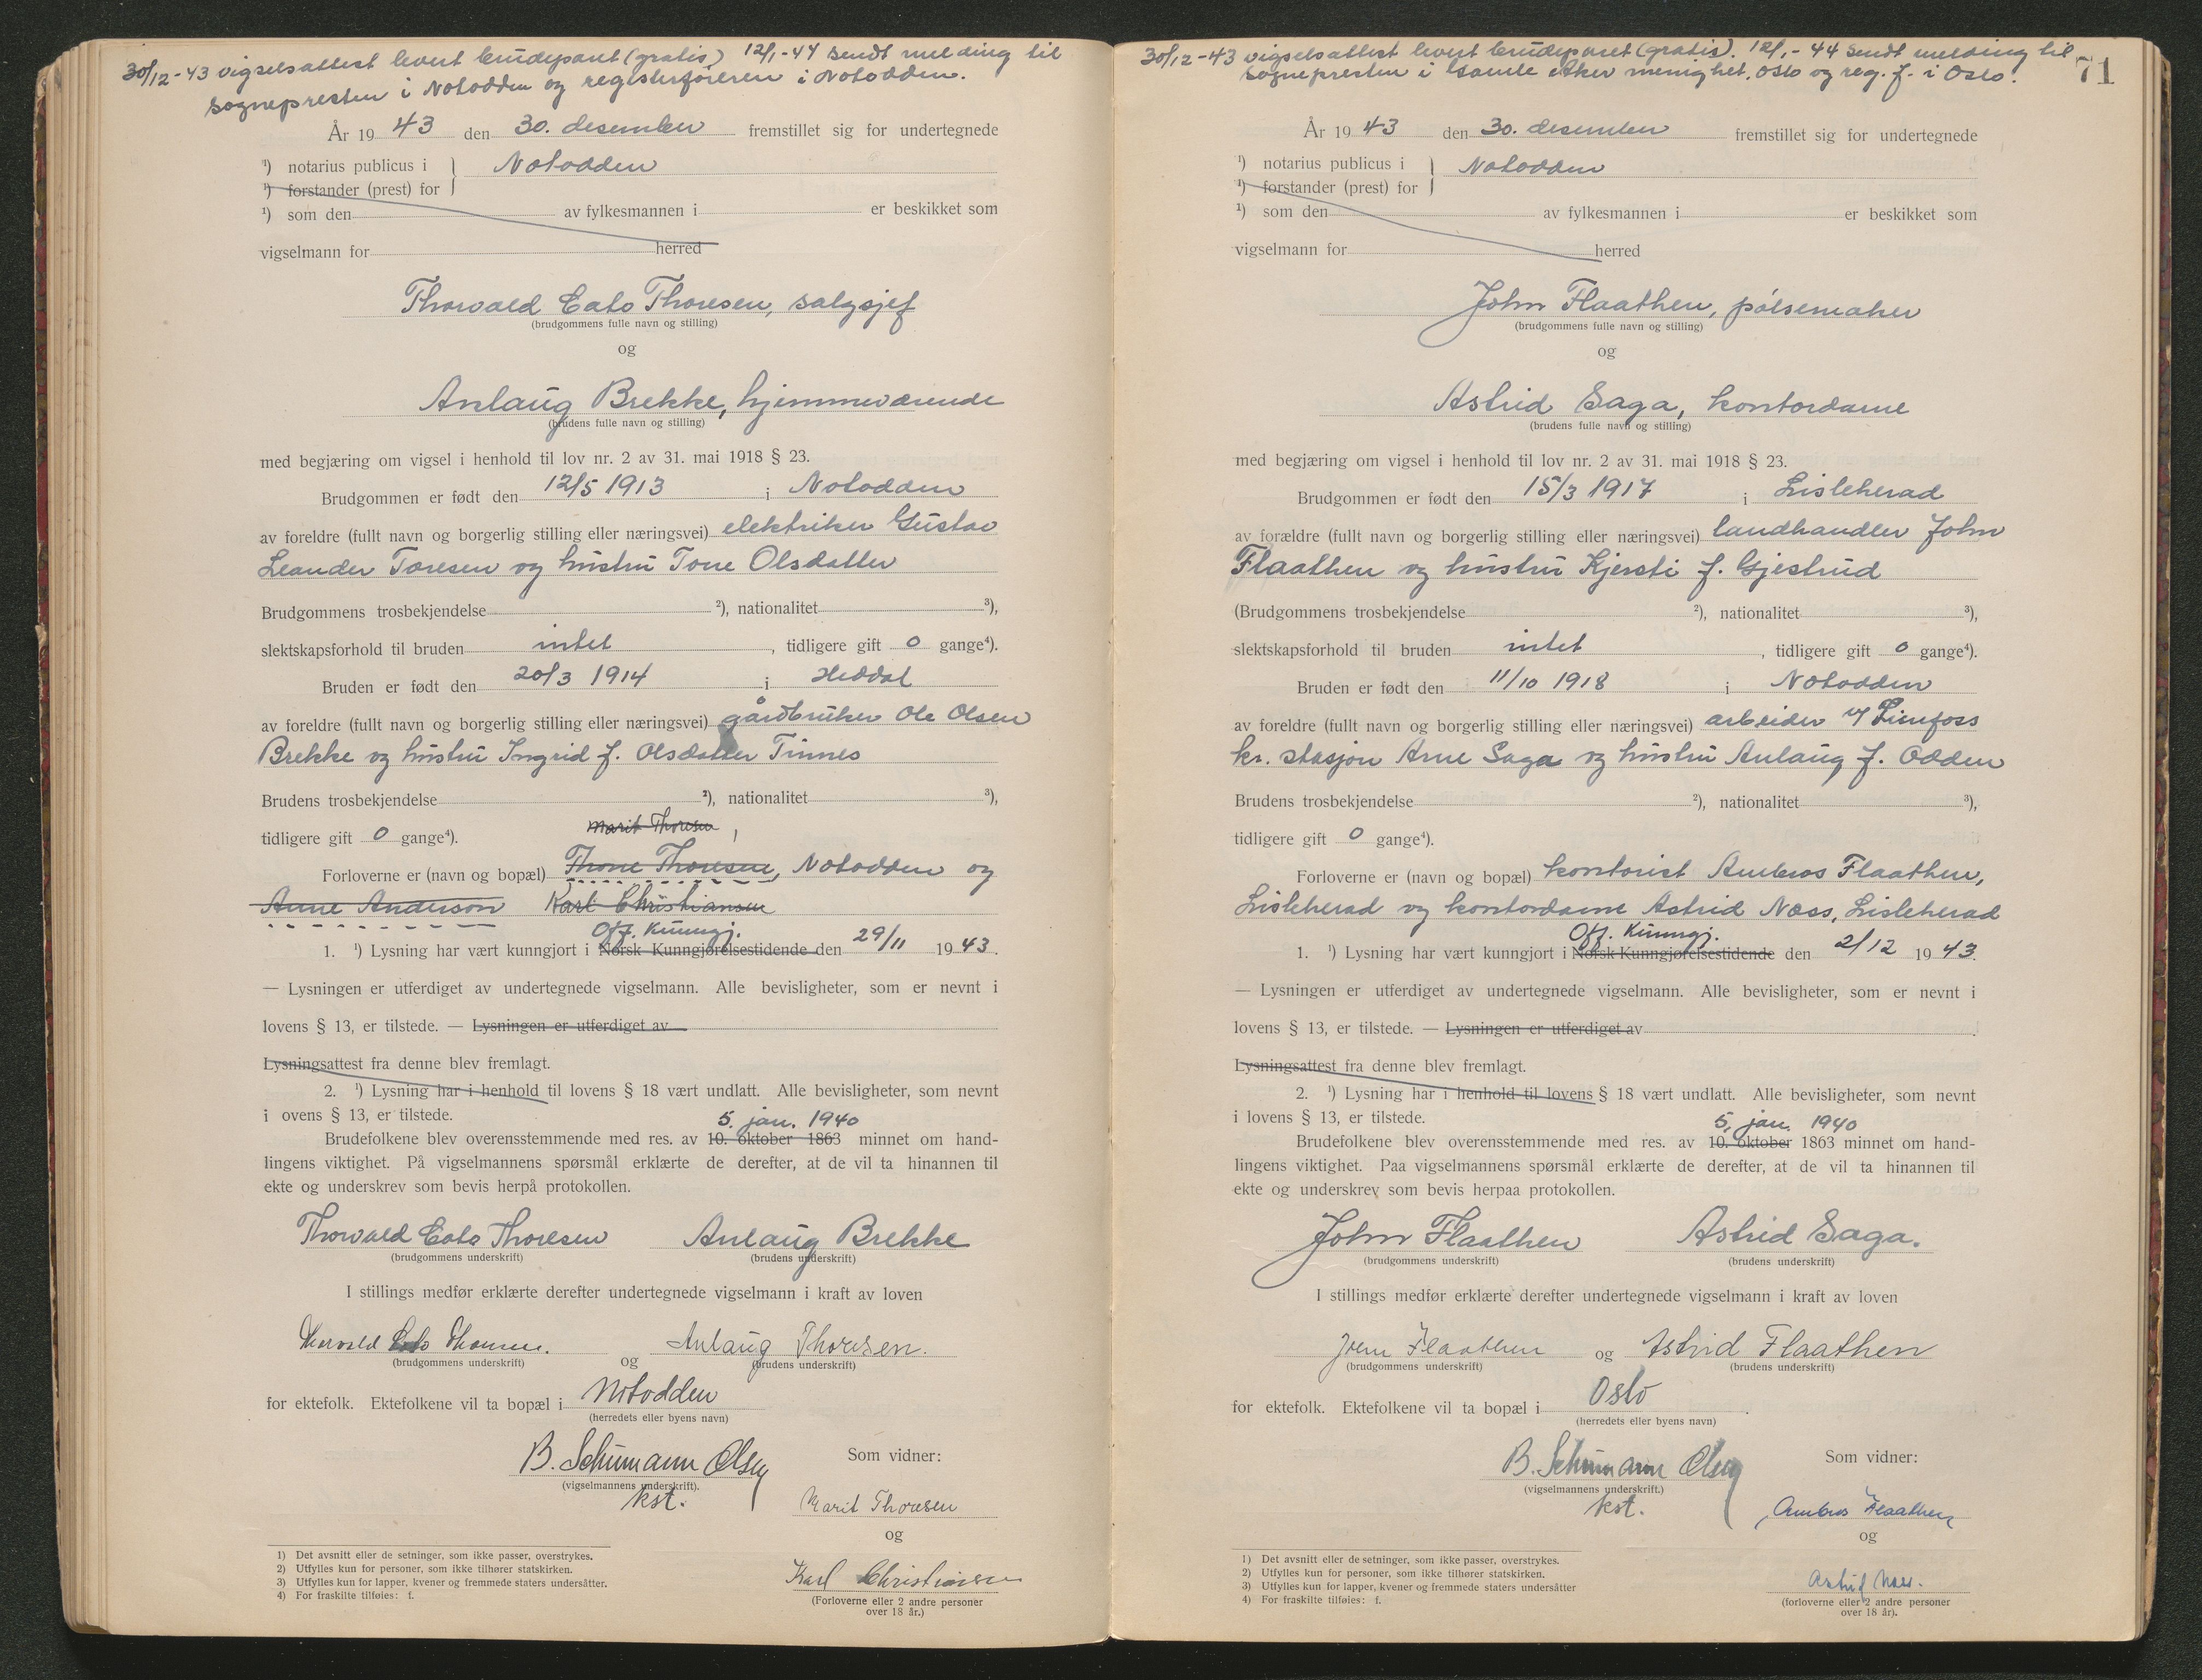 30/12-43 vigselsattest levert brudeparet (gratis) 12/1-44 sendt melding til
sognepresten i Notodden og registerføreren i Notodden.
År 1943 den 30. desember fremstillet sig for undertegnede
¹) notarius publicus i } Notodden
¹) forstander (prest) for
¹) som den av fylkesmannen i er beskikket som
vigselmann for herred
Thorvald Cato Thoresen, salgsjef
(brudgommens fulle navn og stilling)
og
Anlaug Brekke, hjemmeværende
(brudens fulle navn og stilling)
med begjæring om vigsel i henhold til lov nr. 2 av 31. mai 1918 § 23.
Brudgommen er født den 12/5 1913 i Notodden
av foreldre (fullt navn og borgerlig stilling eller næringsvei) elektriker Gustav
Leander Toresen og hustru Tone Olsdatter
Brudgommens trosbekjendelse ²), nationalitet ³),
slektskapsforhold til bruden intet, tidligere gift 0 gange⁴).
Bruden er født den 20/3 1914 i Heddal
av foreldre (fullt navn og borgerlig stilling eller næringsvei) gårdbruker Ole Olsen
Brekke og hustru Ingrid f. Olsdatter Tinnes
Brudens trosbekjendelse ²), nationalitet ³),
Marit Thoresen,
tidligere gift 0 gange⁴).
Forloverne er (navn og bopæl) Thone Thoresen, Notodden og
Anne Anderson Karl Christiansen
Off. Kunngj.
1. ¹) Lysning har vært kunngjort i Norsk Kunngjørelsestidende den 29/11 1943.
— Lysningen er utferdiget av undertegnede vigselmann. Alle bevisligheter, som er nevnt i
lovens § 13, er tilstede. — Lysningen er utferdiget av
Lysningsattest fra denne blev fremlagt.
2. ¹) Lysning har i henhold til lovens § 18 vært undlatt. Alle bevisligheter, som nevnt
i ovens § 13, er tilstede.
5. jan. 1940
Brudefolkene blev overensstemmende med res. av 10. oktober 1863 minnet om hand-
lingens viktighet. På vigselmannens spørsmål erklærte de derefter, at de vil ta hinannen til
ekte og underskrev som bevis herpå protokollen.
Thorvald Cato Thoresen Anlaug Brekke
(brudgommens underskrift) (brudens underskrift)
I stillings medfør erklærte derefter undertegnede vigselmann i kraft av loven
Thorvald Cato Thoresen. og Anlaug Thoresen.
(brudgommens underskrift) (brudens underskrift)
for ektefolk. Ektefolkene vil ta bopæl i Notodden
(herredets eller byens navn)
B. Schumann Olsen Som vidner:
(vigselmannens underskrift).
kst. Marit Thoresen
og
Karl Christiansen
(Forloverne eller 2 andre personer
over 18 år.)
1) Det avsnitt eller de setninger, som ikke passer, overstrykes.
2) Utfylles kun for personer, som ikke tilhører statskirken.
3) Utfylles kun for lapper, kvener og fremmede staters undersåtter.
4) For fraskilte tilføies: f.
71
30/12-43 vigselsattest levert brudeparet (gratis). 12/1-44 sendt melding til
sognepresten i Gamle Aker menighet, Oslo og reg. f. i Oslo.
År 1943 den 30. desember fremstillet sig for undertegnede
¹) notarius publicus i } Notodden
¹) forstander (prest) for
¹) som den av fylkesmannen i er beskikket som
vigselmann for herred
John Flaathen, pølsemaker
(brudgommens fulle navn og stilling)
og
Astrid Saga, kontordame
(brudens fulle navn og stilling)
med begjæring om vigsel i henhold til lov nr. 2 av 31. mai 1918 § 23.
Brudgommen er født den 15/3 1917 i Lisleherad
av forældre (fullt navn og borgerlig stilling eller næringsvei) landhandler John
Flaathen og hustru Kjersti f. Gjestrud
(Brudgommens trosbekjendelse ²), nationalitet ³),
slektskapsforhold til bruden intet, tidligere gift 0 gange⁴).
Bruden er født den 11/10 1918 i Notodden
av foreldre (fullt navn og borgerlig stilling eller næringsvei) arbeider v/ Tinfoss
kr. stasjon Arne Saga og hustru Anlaug f. Odden
Brudens trosbekjendelse ²), nationalitet ³),
tidligere gift 0 gange⁴).
Forloverne er (navn og bopæl) kontorist Ambros Flaathen,
Lisleherad og kontordame Astrid Næss, Lisleherad
Off. Kunngj.
1. ¹) Lysning har vært kunngjort i Norsk Kunngjørelsestidende den 2/12 1943.
— Lysningen er utferdiget av undertegnede vigselmann. Alle bevisligheter, som er nevnt i
lovens § 13, er tilstede. — Lysningen er utferdiget av
Lysningsattest fra denne blev fremlagt.
2. ¹) Lysning har i henhold til lovens § 18 vært undlatt. Alle bevisligheter, som nevnt
i lovens § 13, er tilstede.
5. jan. 1940
Brudefolkene blev overensstemmende med res. av 10. oktober 1863 minnet om hand-
lingens viktighet. Paa vigselmannens spørsmål erklærte de derefter, at de vil ta hinannen til
ekte og underskrev som bevis herpaa protokollen.
John Flaathen Astrid Saga.
(brudgommens underskrift) (brudens underskrift)
I stillings medfør erklærte derefter undertegnede vigselmann i kraft av loven
John Flaathen og Astrid Flaathen
(brudgommens underskrift) (brudens underskrift)
for ektefolk. Ektefolkene vil ta bopæl i Oslo.
(herredets eller byens navn)
B. Schumann Olsen Som vidner:
(vigselmannens underskrift.)
kst. Ambros Flaathen
og
Astrid Næss.
(forloverne eller 2 andre personer
over 18 år).
1) Det avsnitt eller de setninger, som ikke passer, overstrykes.
2) Utfylles kun for personer, som ikke tilhører statskirken.
3) Utfylles kun for lapper, kvener og fremmede staters undersåtter
4) For fraskilte tilføies: f.